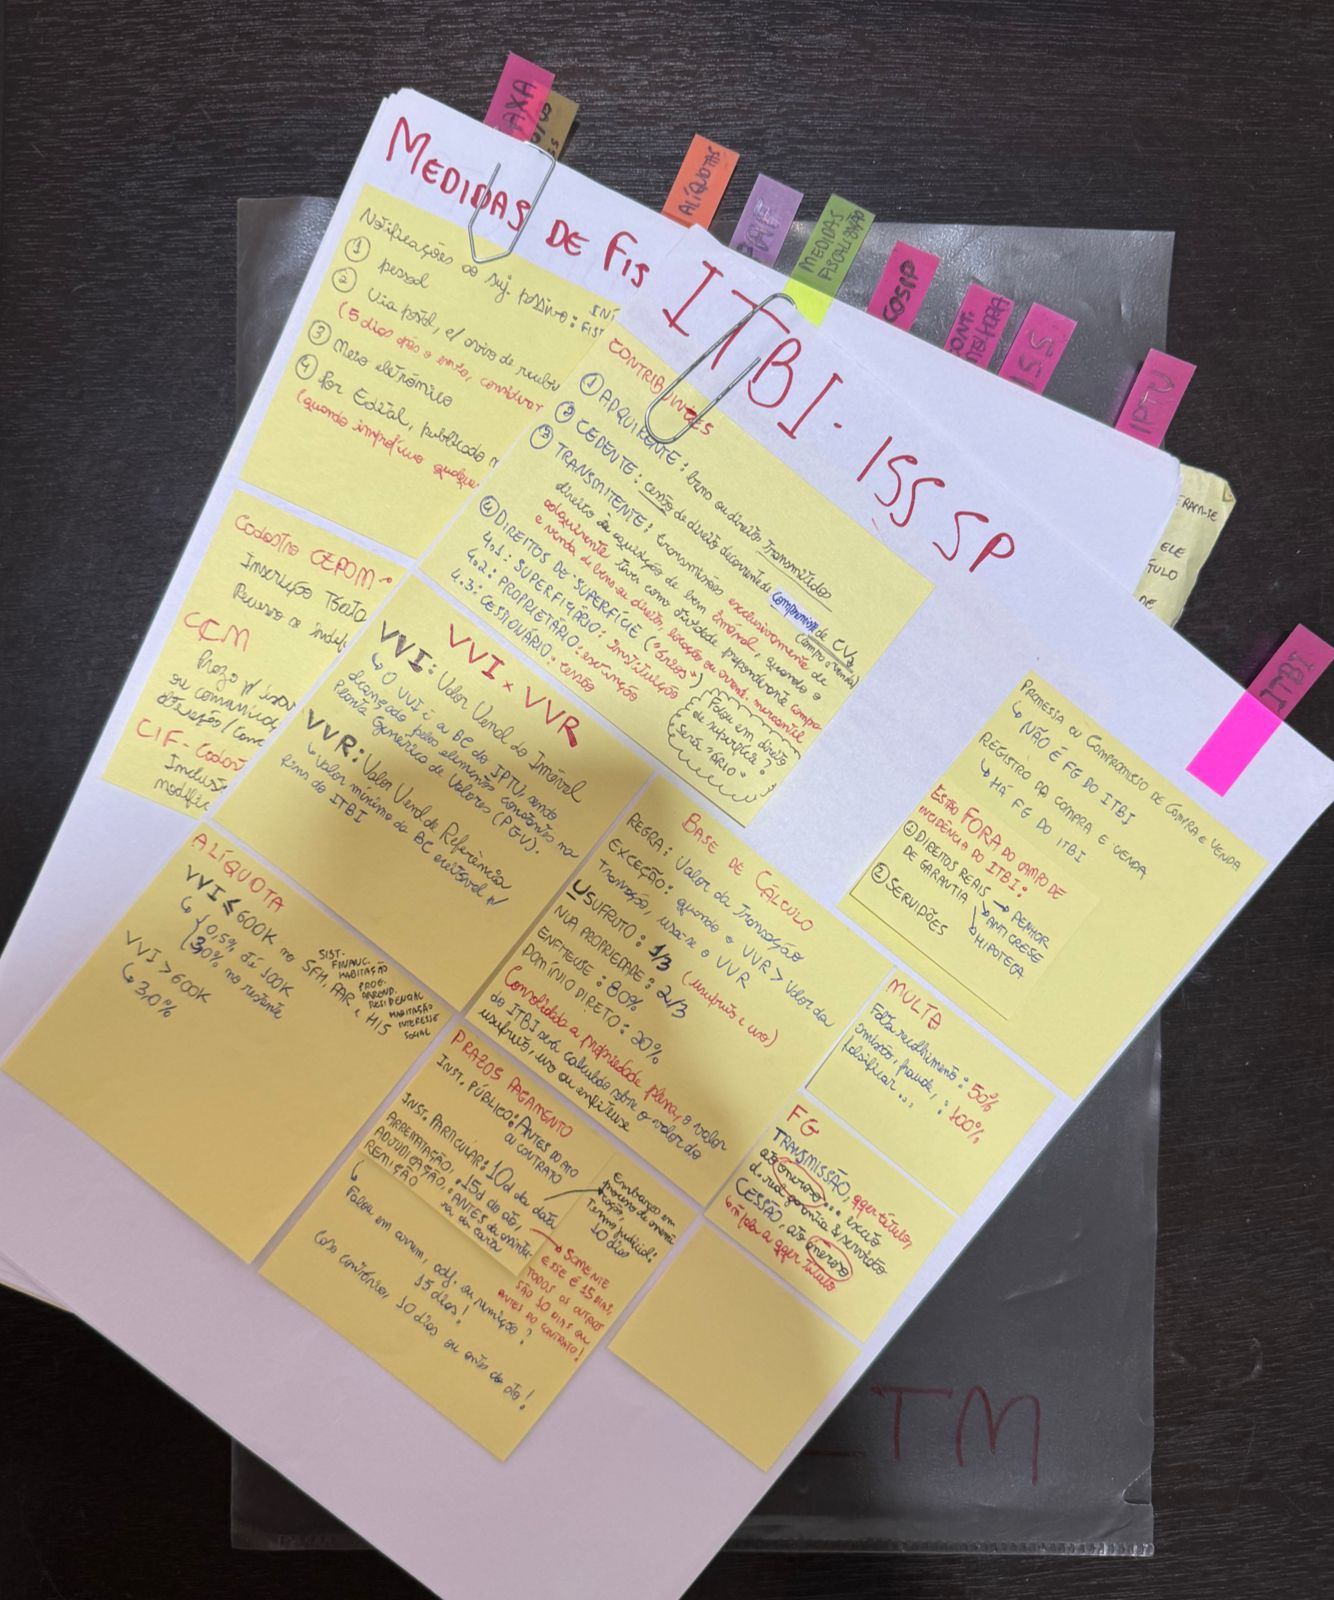 AXA
ALÍQUOTAS
MEDIDAS
FISCALIZAÇÃO
COSIP
CONT.
MELHORIA
ISS
IPTU
ITBI
MEDIDAS DE FIS
Notificações ao suj. passivo:
① pessoal
② Via postal, c/ aviso de receb
(5 dias após o envio, considerar
③ Meio eletrônico
④ Por Edital, publicado n
(quando improfícuo qualque
Cadastro CEPOM
Inscrição
CCM
Prazo p/
ou comunicar
alteração/
CIF-
modific
ITBI - ISS SP
CONTRIBUINTES
① ADQUIRENTE: bens ou direito transmitidos
② CEDENTE: cessão de direito decorrente de compromisso de CV
(compra e venda)
③ TRANSMITENTE: transmissões exclusivamente de
direito à aquisição de bem imóvel, quando o
adquirente tiver como atividade preponderante compra
e venda de bens ou direito, locação ou arrend. mercantil
④ DIREITOS DE SUPERFÍCIE ("ÁRIOS")
4.1: SUPERFICIÁRIO: Instituição
4.2: PROPRIETÁRIO: extinção
4.3: CESSIONÁRIO: cessão
Falou em direito
de superfície?
Será "ÁRIO"
VVI x VVR
VVI: Valor Venal do Imóvel
↳ O VVI é a BC do IPTU, sendo
alcançado pelos elementos constantes na
Planta Genérica de Valores (PGV).
VVR: Valor Venal de Referência
↳ Valor mínimo da BC aceitável p/
fins do ITBI
ALÍQUOTA
VVI ≤ 600K no SFH, PAR e HIS
↳ 0,5% até 100K
3,0% no restante
SIST.
FINANC.
HABITAÇÃO
PROG.
ARREND.
RESIDENCIAL
HABITAÇÃO
INTERESSE
SOCIAL
VVI > 600K
↳ 3,0%
BASE DE CÁLCULO
REGRA: Valor da Transação
EXCEÇÃO: quando o VVR > Valor da
Transação, usa-se o VVR
USUFRUTO: 1/3 (usufruto e uso)
NUA PROPRIEDADE: 2/3
ENFITEUSE: 80%
DOMÍNIO DIRETO: 20%
Consolidada a propriedade plena, o valor
do ITBI será calculado sobre o valor do
usufruto, uso ou enfiteuse
PRAZOS PAGAMENTO
INST. PÚBLICO: ANTES DO ATO
OU CONTRATO
INST. PARTICULAR: 10d da data
ARREMATAÇÃO, : 15d do ato,
ADJUDICAÇÃO, : ANTES da assinatu-
REMIÇÃO ra da carta
Embargo em
10 dias
→ SOMENTE
ESSE É 15 DIAS,
TODOS OS OUTROS
SÃO 10 DIAS OU
ANTES DO CONTRATO!
↳
Falou em arrem, adj. ou remição?
15 dias!
Caso contrário, 10 dias ou antes do ato!
PROMESSA OU COMPROMISSO DE COMPRA E VENDA
↳ NÃO É FG DO ITBI
REGISTRO DA COMPRA E VENDA
↳ HÁ FG DO ITBI
ESTÃO FORA DO CAMPO DE
INCIDÊNCIA DO ITBI:
① DIREITOS REAIS → PENHOR
DE GARANTIA → ANTICRESE
→ HIPOTECA
② SERVIDÕES
MULTA
Falta recolhimento: 50%
omissão, fraude, : 100%
falsificar...
FG
TRANSMISSÃO, qqer título,
ato oneroso... exceto
d. real garantia & servidão
CESSÃO, ato oneroso
↳ ñ fala a qqer título
ERAM-SE
ELE
TULO
DE
TM